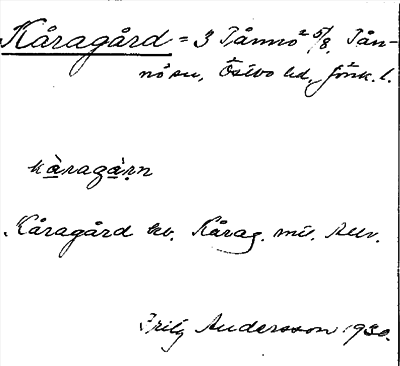 Kåragård = 3 Tånnö 2 5/8, Tån-
nö sn, Östbo hd, Jönk. l.
kàragàṛn
Kåragård kb. Kårag. mil.
Fritz Andersson 1930.